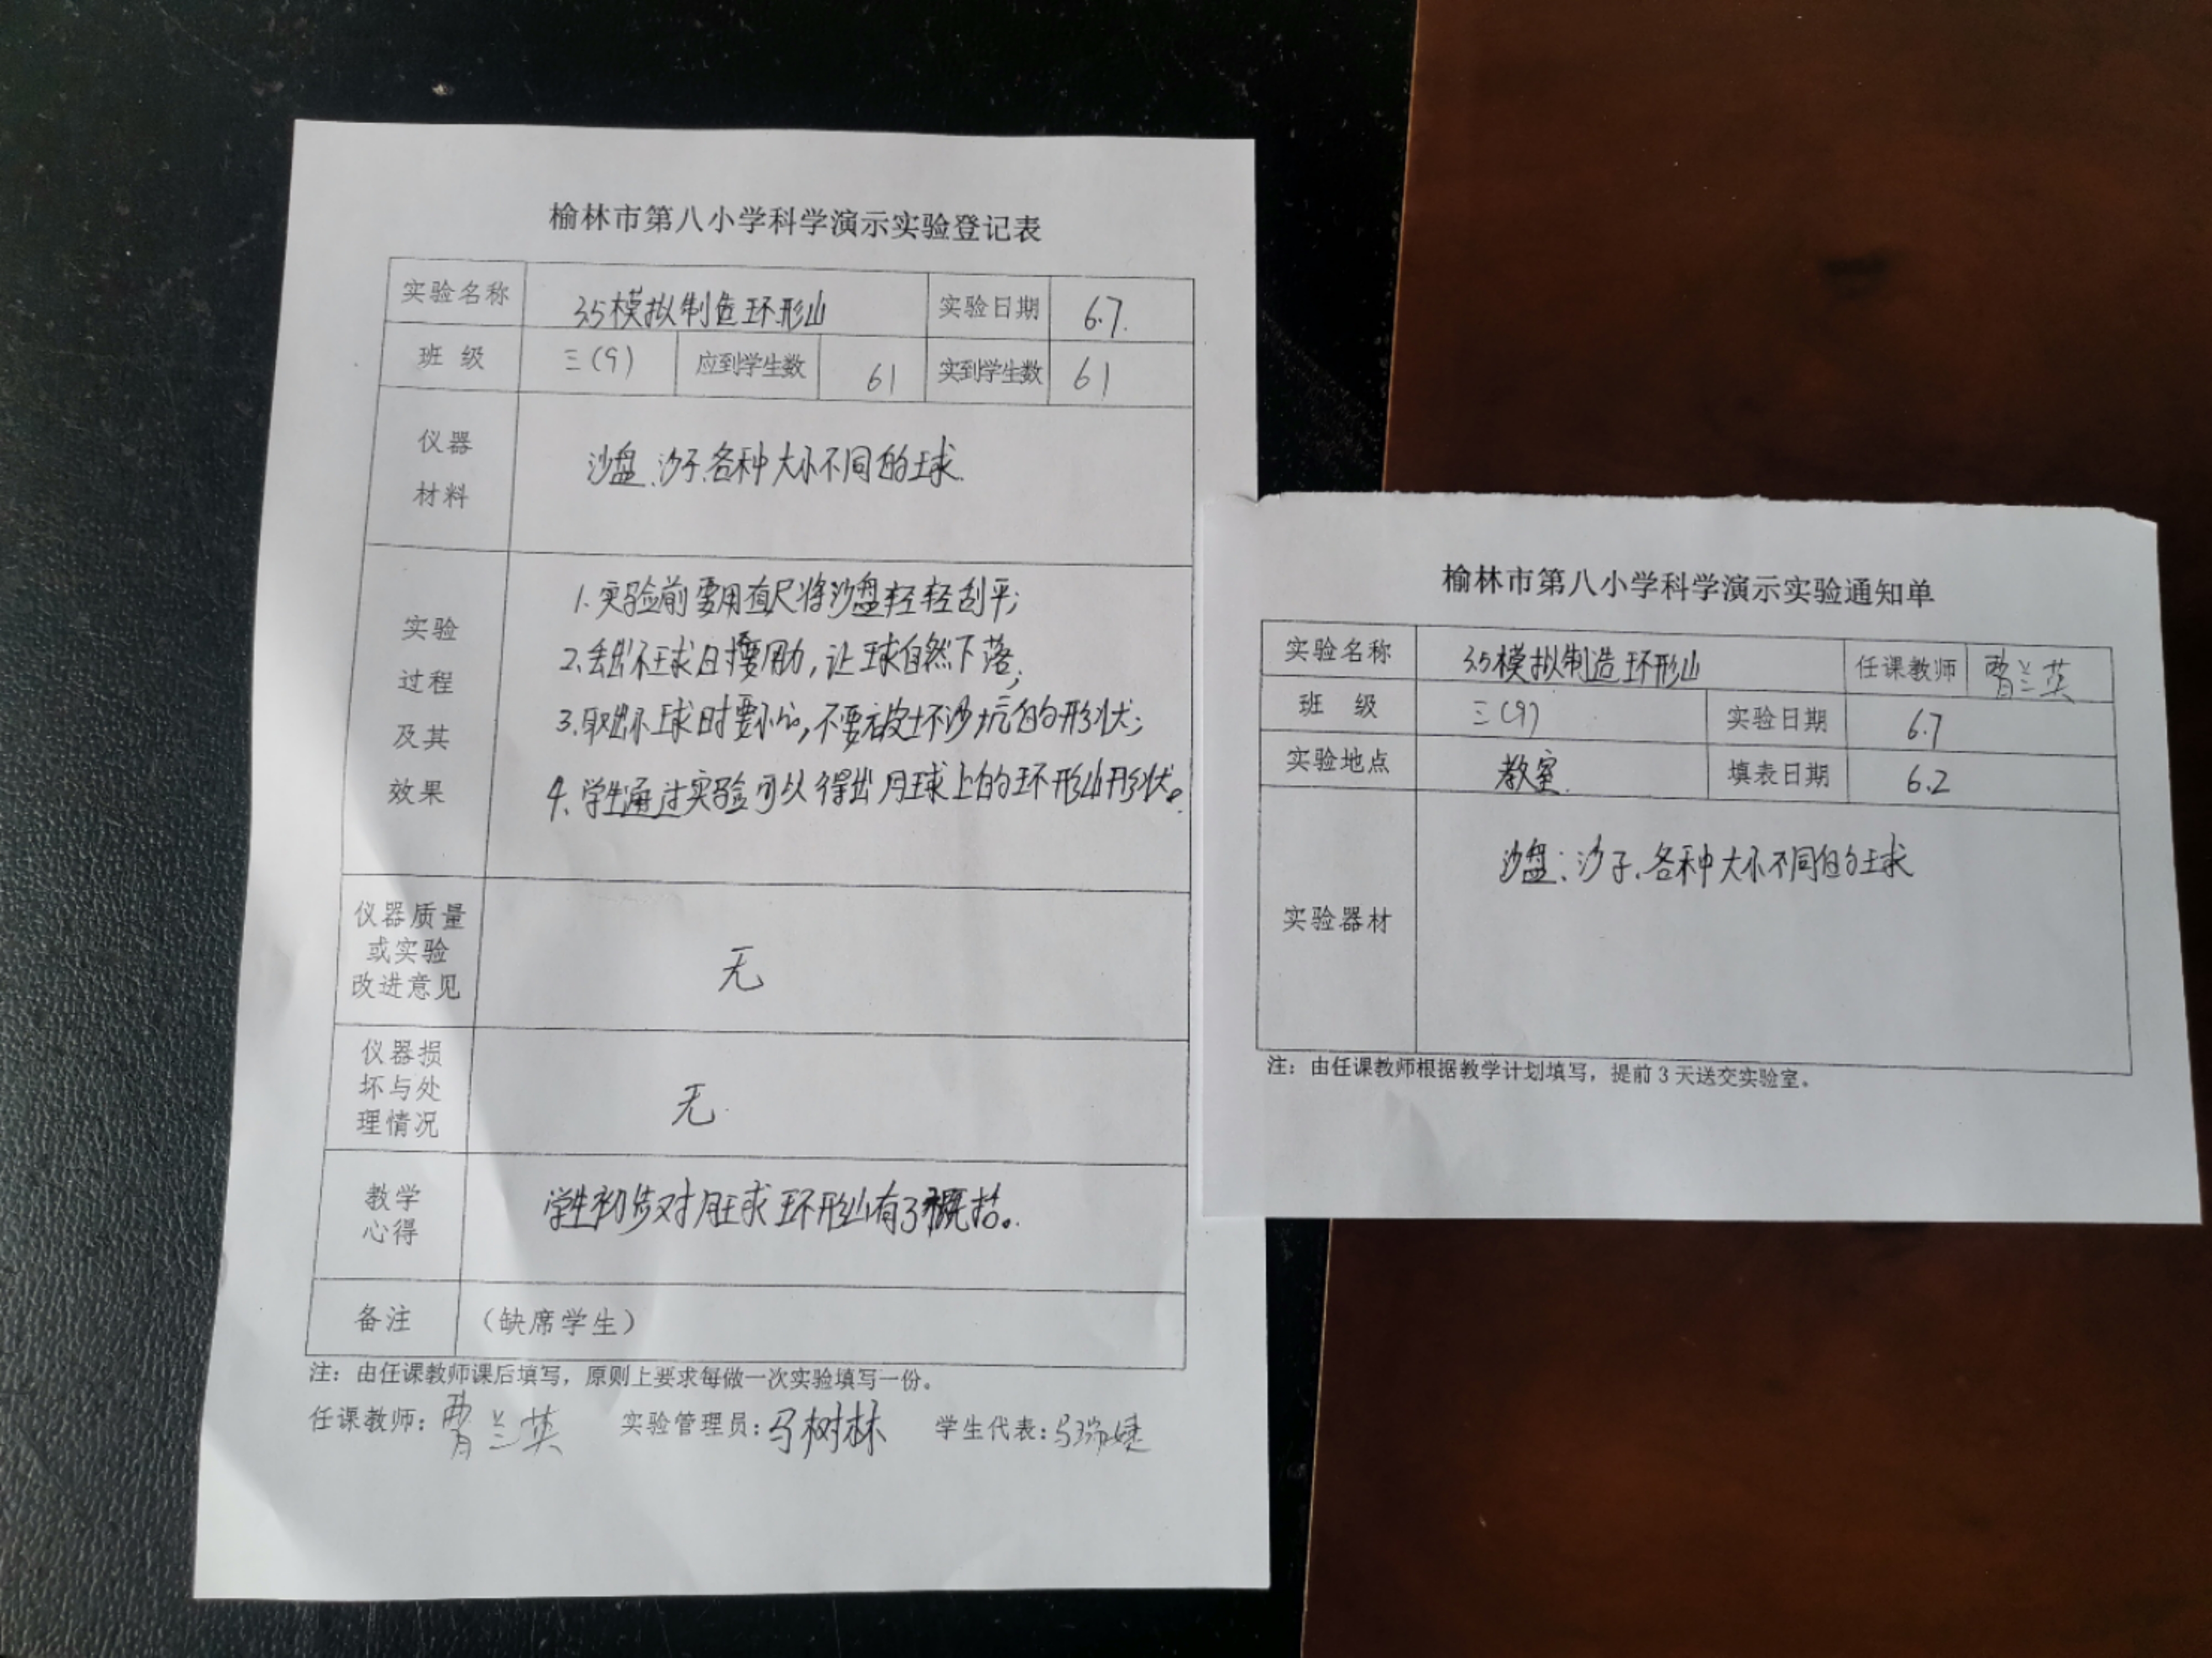 榆林市第八小学科学演示实验登记表
实验名称 3.5模拟制造环形山 实验日期 6.7.
班 级 三(9) 应到学生数 61 实到学生数 61
仪器
材料
沙盘、沙子、各种大小不同的球.
实验
过程
及其
效果
1.实验前要用直尺将沙盘轻轻刮平;
2.丢出小球时不要用力,让球自然下落;
3.取出小球时要小心,不要破坏沙坑的形状;
4.学生通过实验可以得出月球上的环形山形状。
仪器质量
或实验
改进意见
无
仪器损
坏与处
理情况
无.
教学
心得
学生初步对月球环形山有了概括。
备注 （缺席学生）
注：由任课教师课后填写，原则上要求每做一次实验填写一份。
任课教师：曹兰英 实验管理员：马树林 学生代表：马瑞婕
榆林市第八小学科学演示实验通知单
实验名称 3.5模拟制造环形山 任课教师 曹兰英
班 级 三(9) 实验日期 6.7
实验地点 教室. 填表日期 6.2
实验器材 沙盘;沙子、各种大小不同的球
注：由任课教师根据教学计划填写，提前 3 天送交实验室。